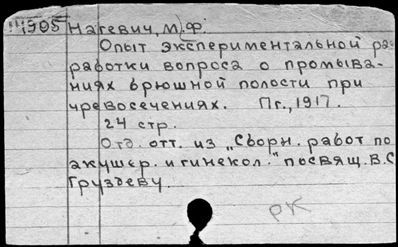 1905 Нагевич, М.Ф.
Опыт экспериментальной раз
работки вопроса о промыва-
ниях брюшной полости при
чревосечениях. Пг., 1917.
24 стр.
Отд. отт. из „Сборн. работ по
акушер. и гинекол." посвящ. В.С
Груздеву.
РК